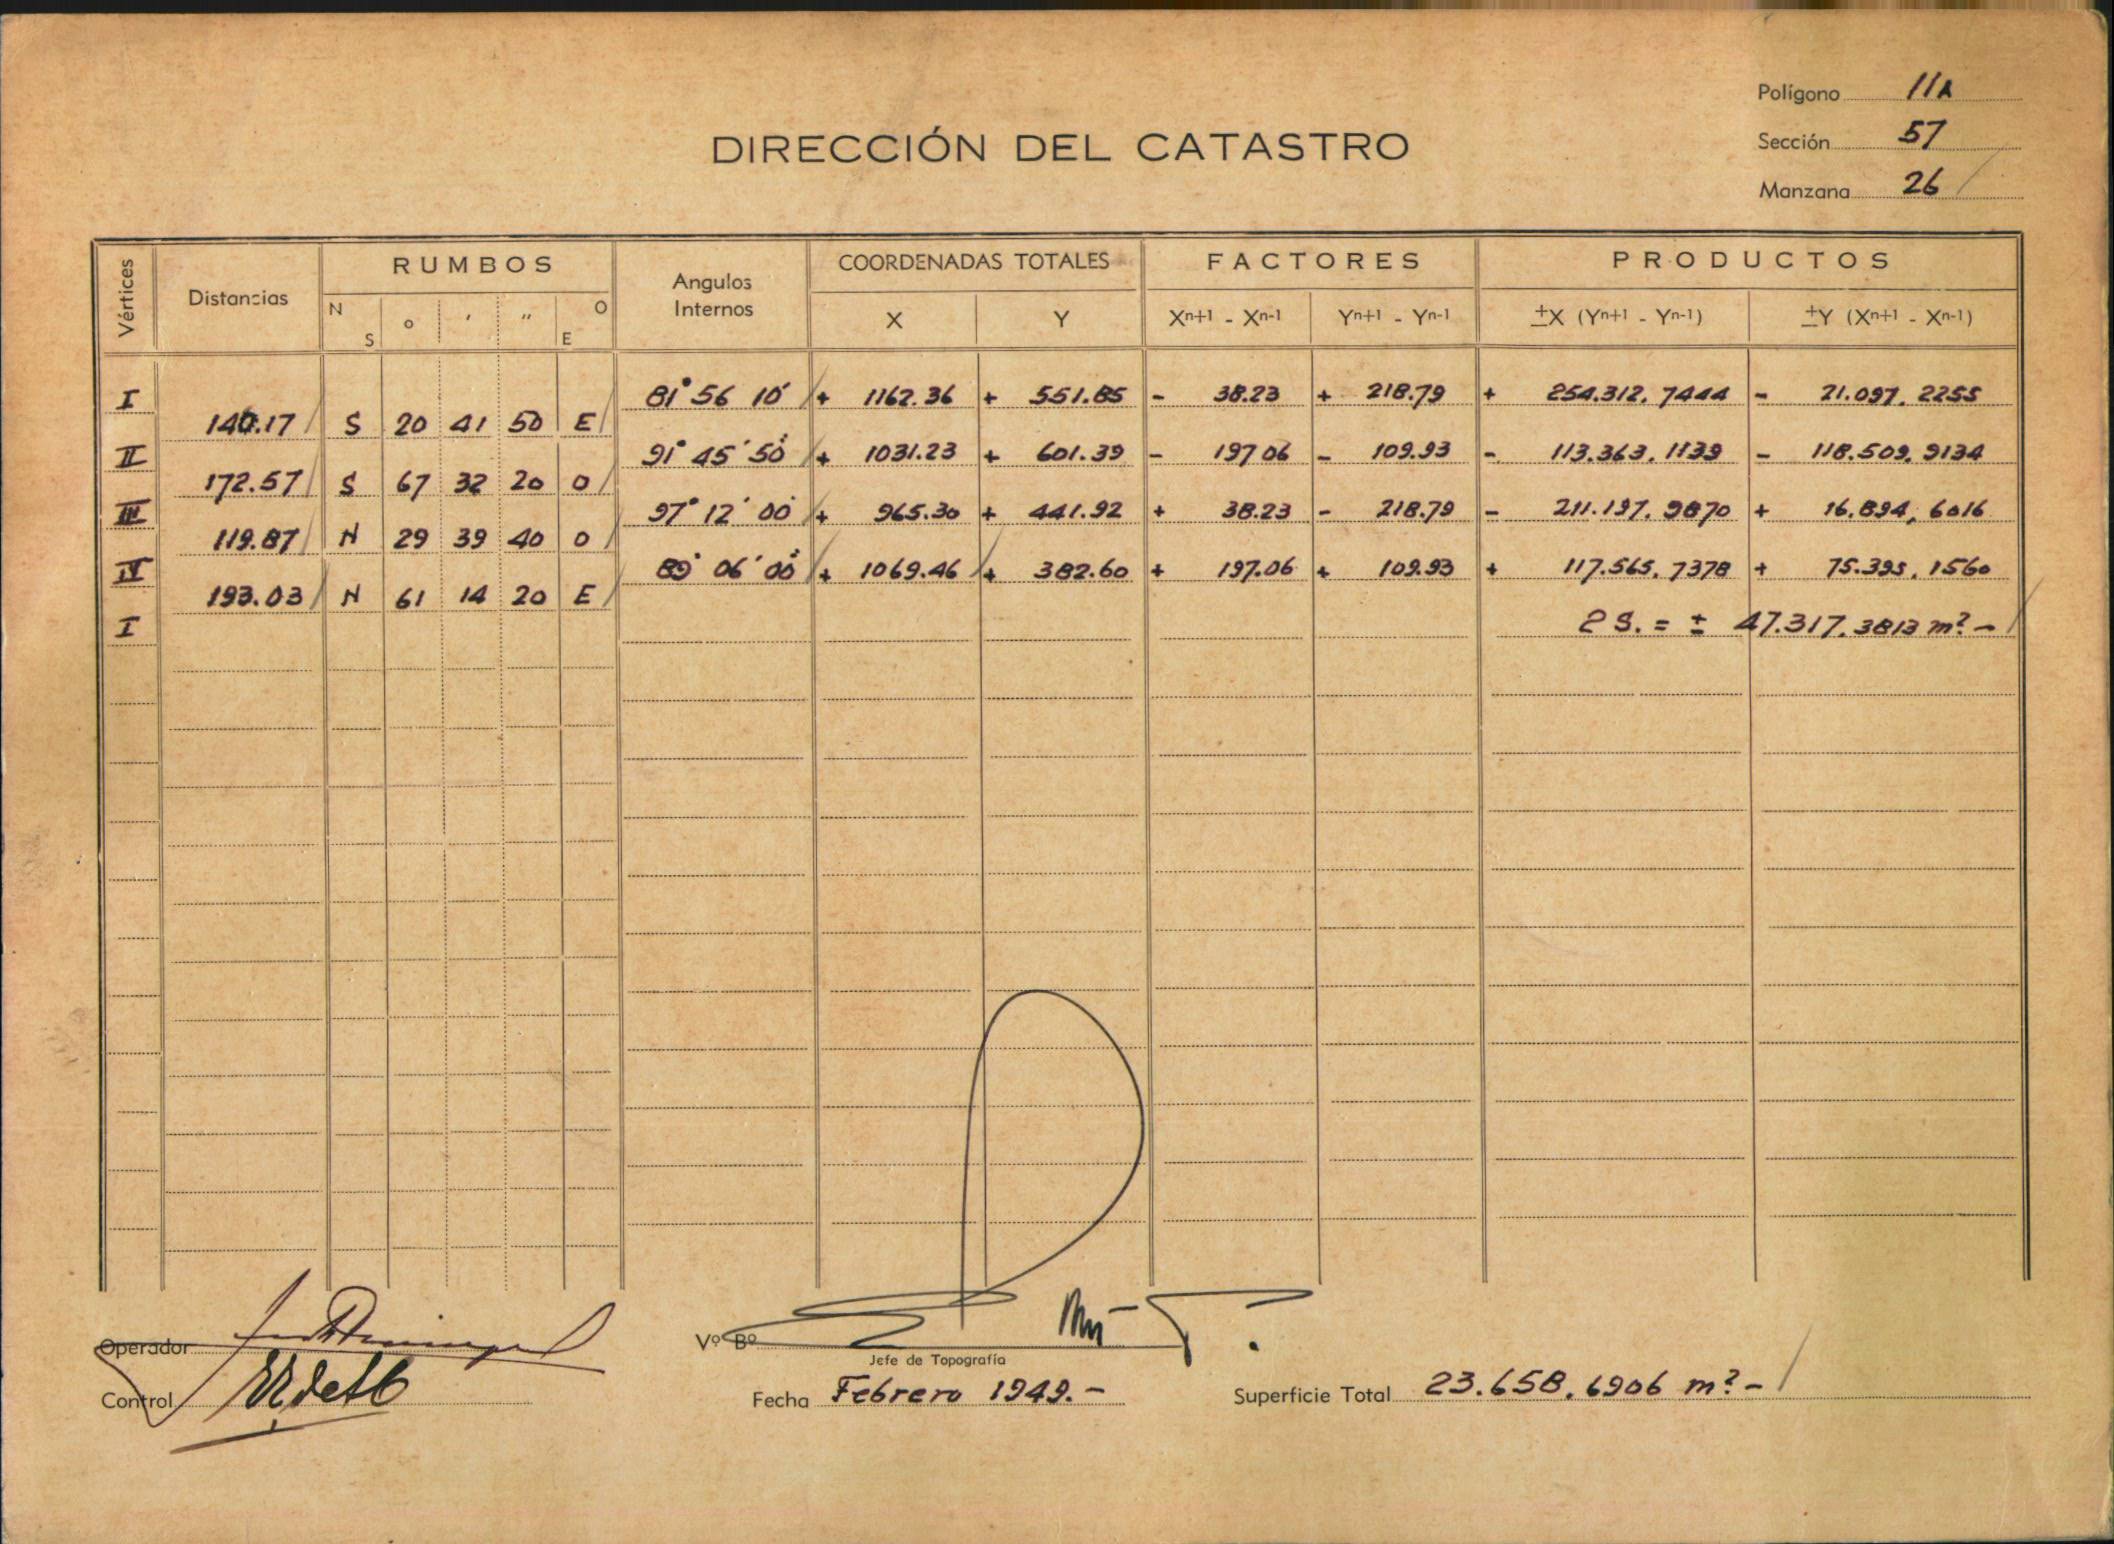 Polígono 11A
DIRECCIÓN DEL CATASTRO
Sección 57
Manzana 26
Vértices Distancias RUMBOS Angulos Internos COORDENADAS TOTALES FACTORES PRODUCTOS
N S o ′ ″ O E X Y Xn+1 - Xn-1 Yn+1 - Yn-1 ±X (Yn+1 - Yn-1) ±Y (Xn+1 - Xn-1)
I 81° 56 10′ + 1162.36 + 551.85 - 38.23 + 218.79 + 254.312.7444 - 21.097.2255
140.17 S 20 41 50 E
II 91° 45′ 50″ + 1031.23 + 601.39 - 197 06 - 109.93 - 113.363.1139 - 118.509.9134
172.57 S 67 32 20 O
III 97° 12′ 00″ + 965.30 + 441.92 + 38.23 - 218.79 - 211.197.9870 + 16.894,6016
119.87 N 29 39 40 O
IV 89° 06′ 00″ + 1069.46 + 382.60 + 197.06 + 109.93 + 117.565.7378 + 75.395.1560
193.03 N 61 14 20 E
I 2 S. = ± 47.317.3813 m² -
Operador
Vº Bº
Jefe de Topografía
Control
Fecha Febrero 1949.-
Superficie Total 23.658.6906 m² -